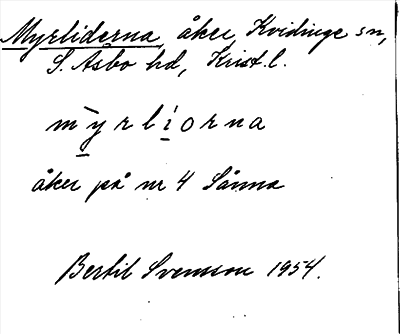 Myrliderna, åker Kvidinge sn,
S. Åsbo hd, Krist. l.
mȳrlíorna
åker på nr 4 Sånna
Bertil Svensson 1954.